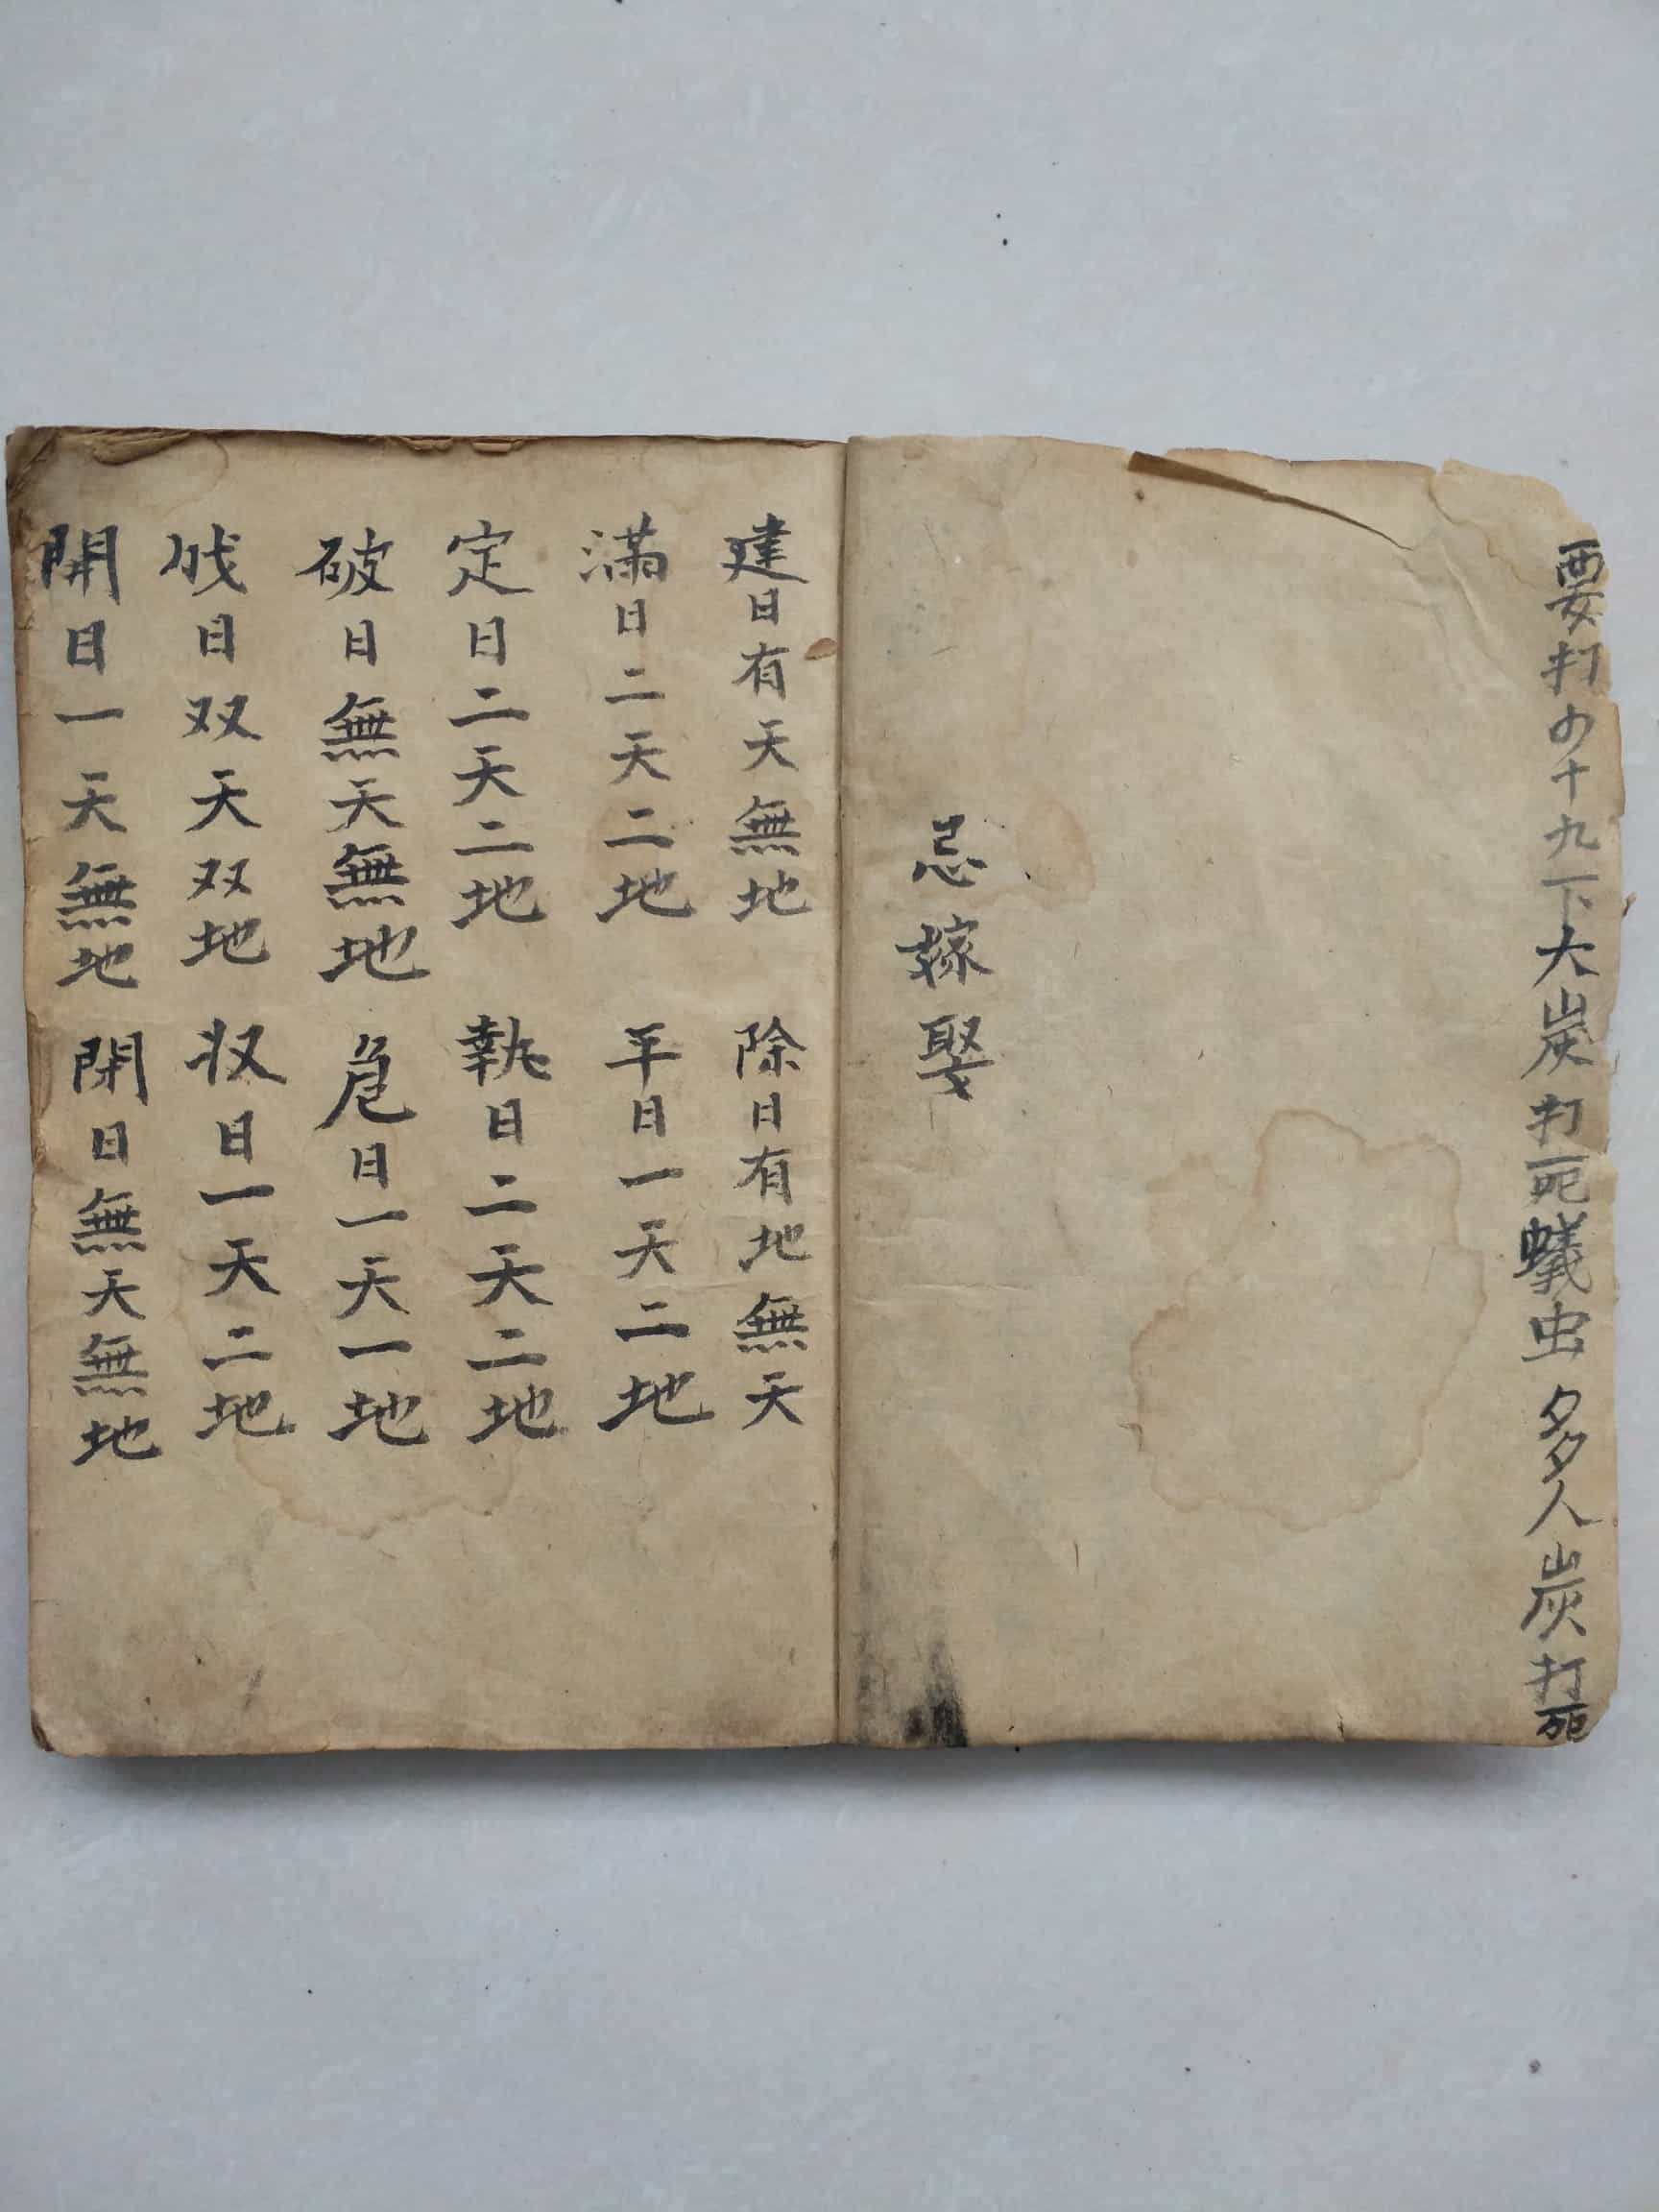 要打四十九下大炭打死蟻虫多人炭打死
忌嫁娶
建日有天無地 除日有地無天
滿日二天二地 平日一天二地
定日二天二地 執日二天二地
破日無天無地 危日一天一地
成日双天双地 収日一天二地
開日一天無地 閉日無天無地